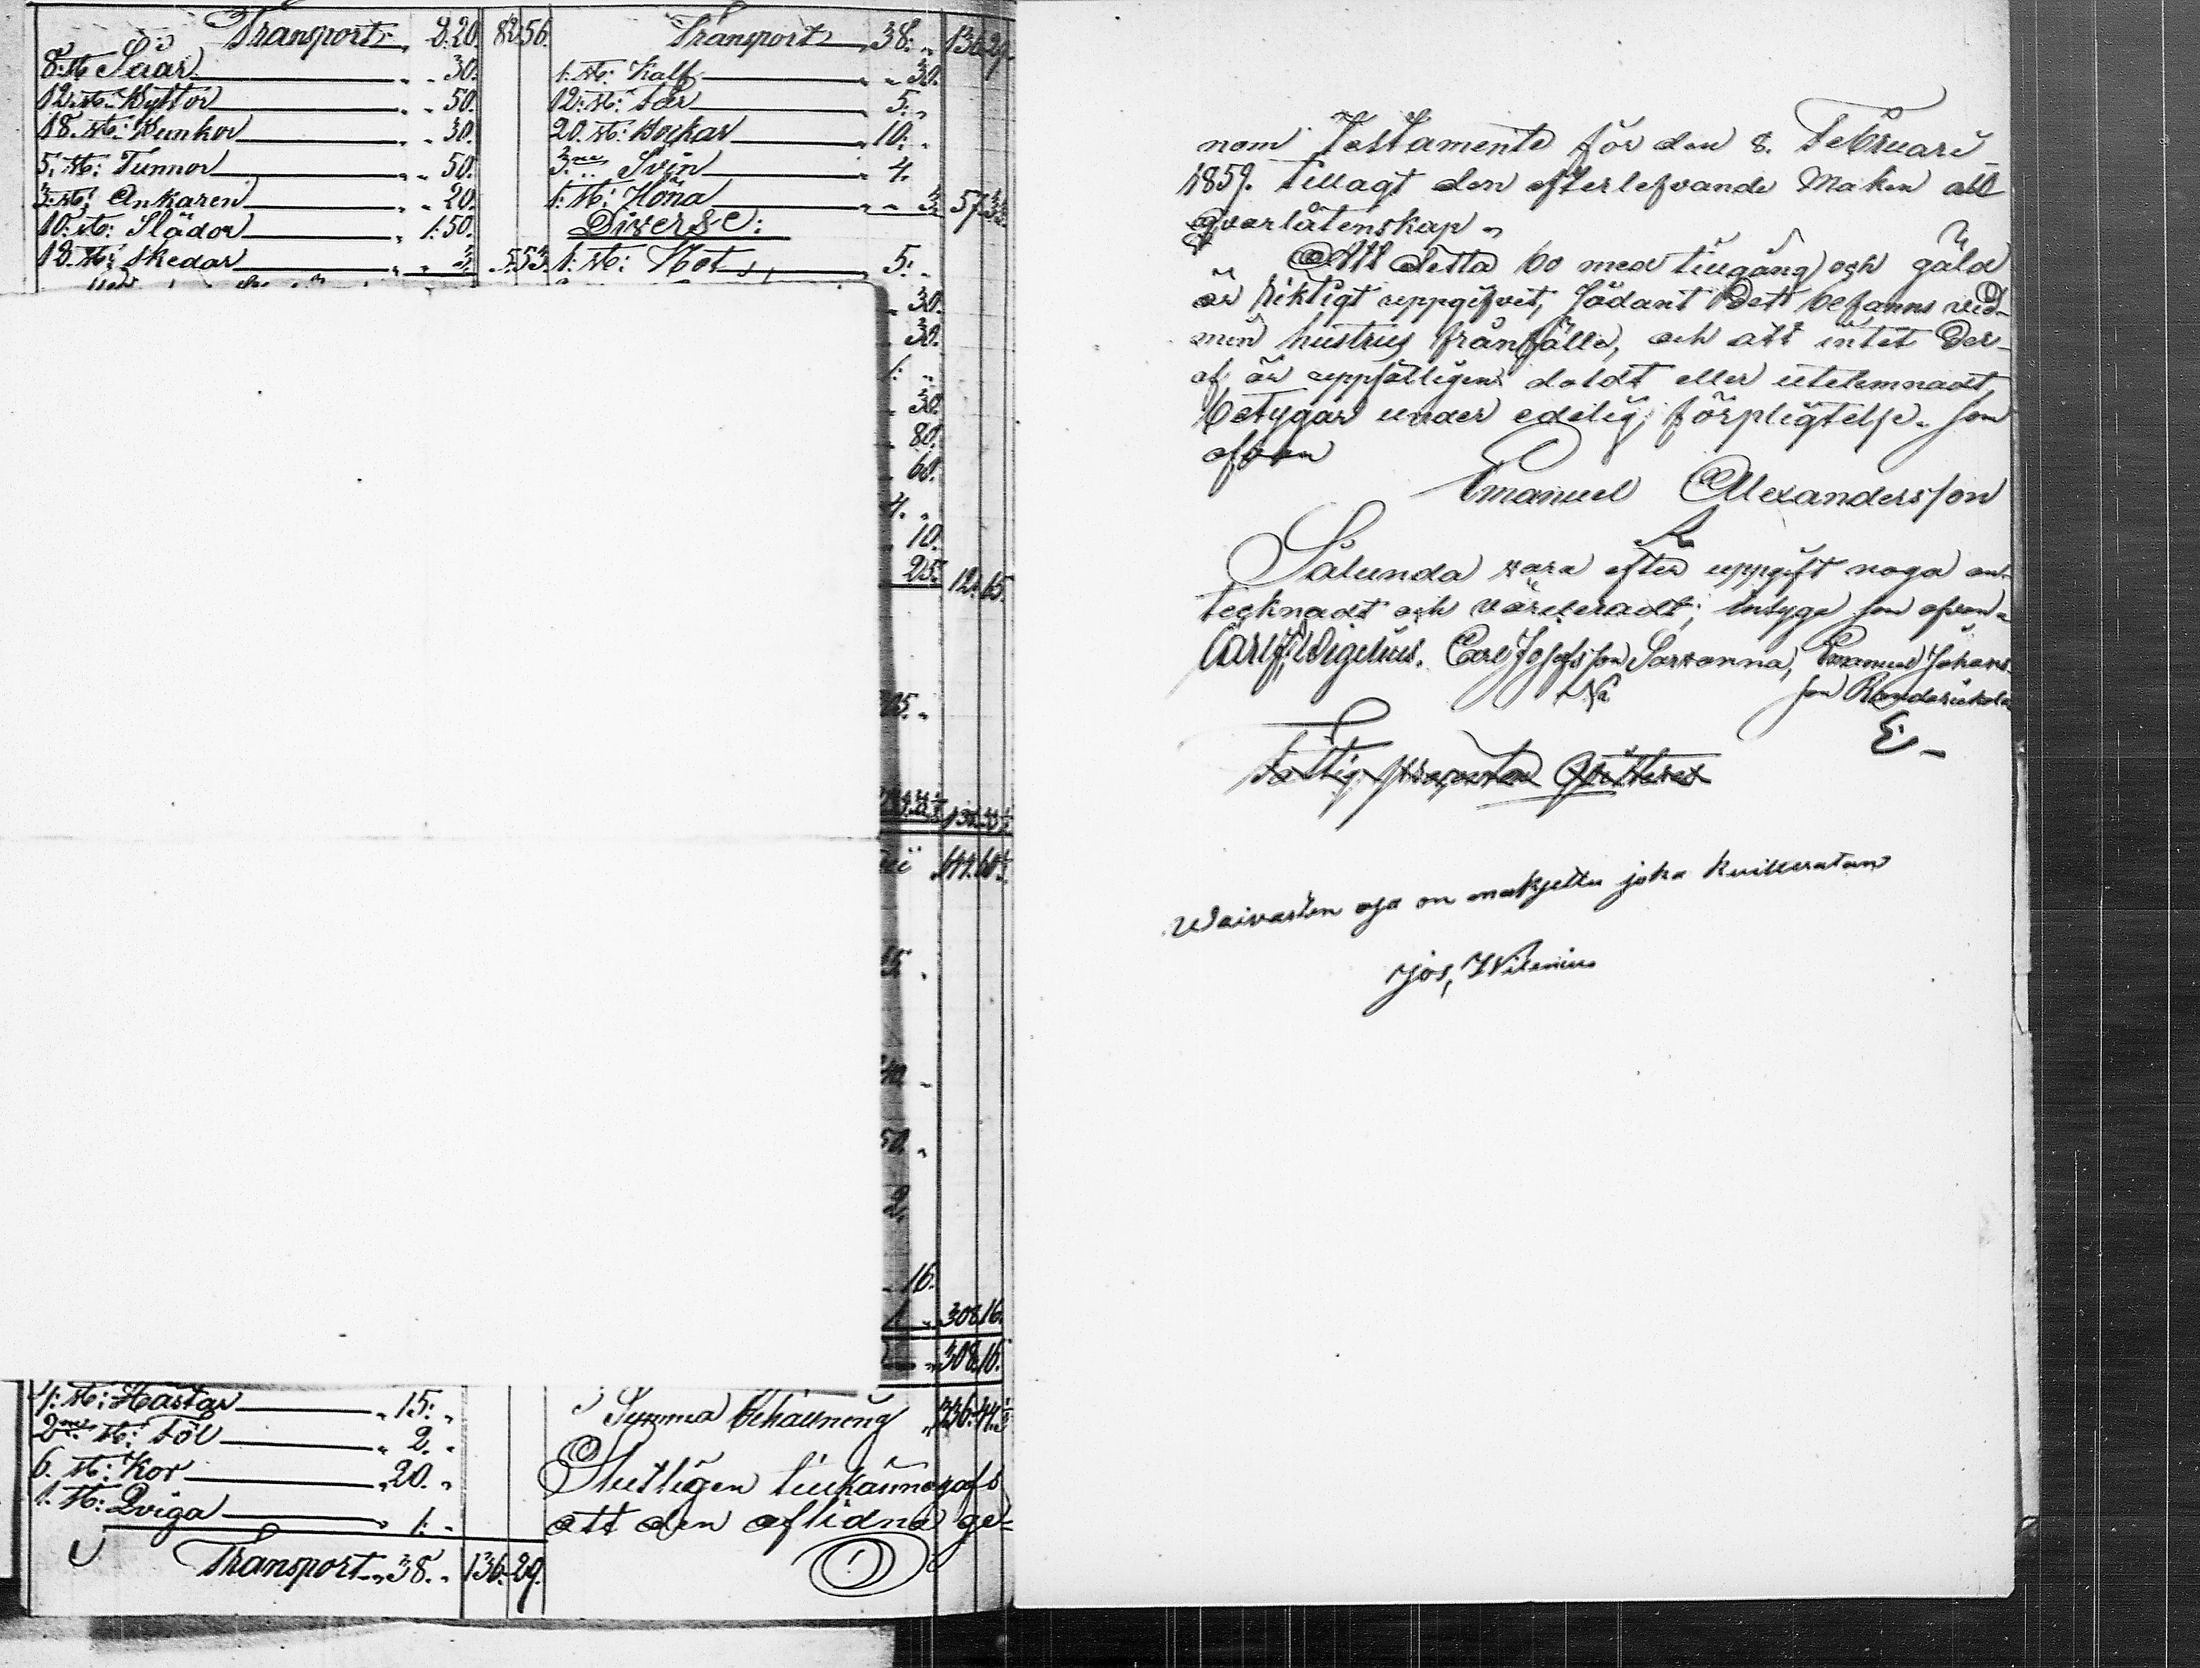 Transport „ 2:20. 82 56.
8: st Såar „ „ 30.
12. st: Byttor „ „ 50.
18. st: Bunkor „ „ 30.
5. st: Tunnor „ „ 50.
3. st: Ankaren „ „ 20.
10: st: Slädor „ 1:50.
12. st: skedar „ „ 3. 5:53.
4: st: Hästar „ 15: „
2ne st: Föl „ 2. „
6. st: Kor „ 20. „
1. st: Qviga „ 1: „
Transport „ 38. „ 136. 29.
Transport „ 38: „ 136 29.
1: st: Kalf „ „ 30.
12: st: Får „ 5: „
20. st: Bockar „ 10: „
3ne „ Svin „ 4.
1. st: Höna „ „ 3 57 33
Diverse:
1. st: Not „ 5: „
„ 30.
„ 30.
1: „
„ 30.
„ 80.
„ 60.
4. „
„ 10.
25. 12. 65.
15. „
50. „
2.
„ 16.
308 16.
308 16.
Summa behållning „ 336. 44. ½
Slutligen tillkännagafs
att den aflidna ge-
nom Testamente för den 8. Februari
1859. tillagt den efterlefvande Maken all
qvarlåtenskap „
Att detta bo med tillgång och gäld
är riktigt uppgifvit, sådant Dett befanns vid
min hustrus frånfälle, och att intet Der-
af är uppsåtligen doldt eller utelemnadt,
betygar under edelig förpligtelse. Som
ofvan
Emanuel Alexandersson
Sålunda vara efter uppgift noga an-
tecknadt och värderadt; intyga som ofvan.
Carl J. Wigelius. Carl Josefsson Sarvanna, Emanuel Johans-
son
Fattig procenten qvitteras
Waivasten osa on maksettu joka kvitteratan
Jos, Wilenius